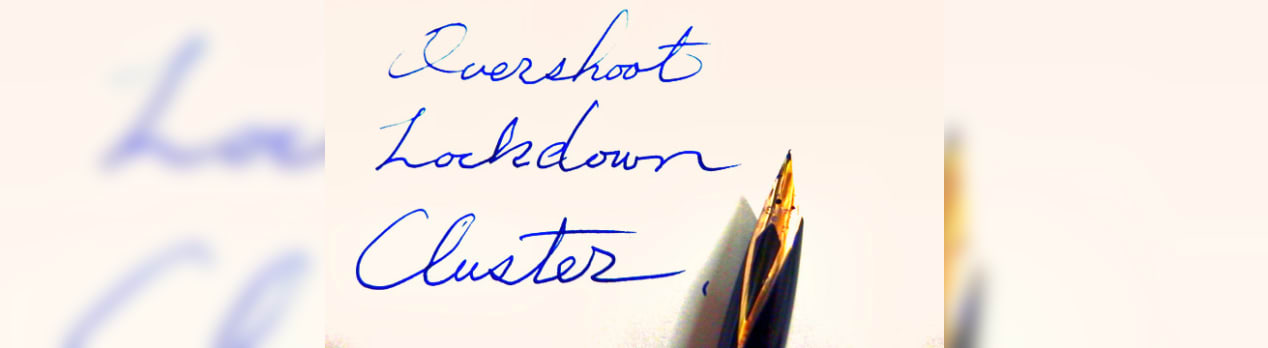 Overshoot
Lockdown
Cluster